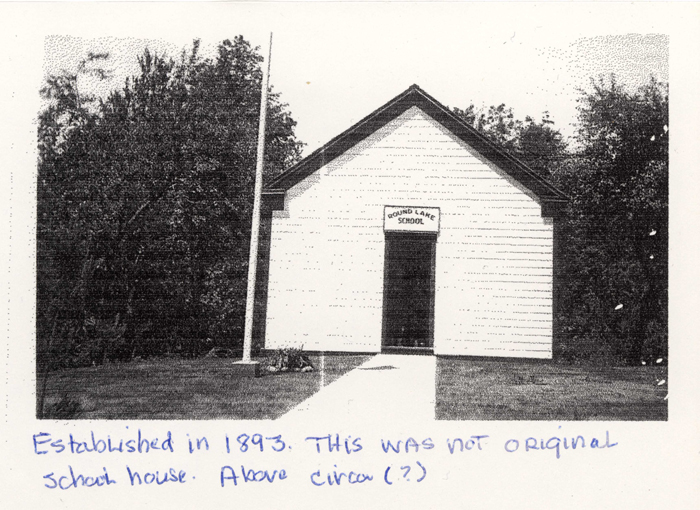 ROUND LAKE
SCHOOL
Established in 1893. THIS WAS NOT ORIGINAL
School house. Above circa (?)